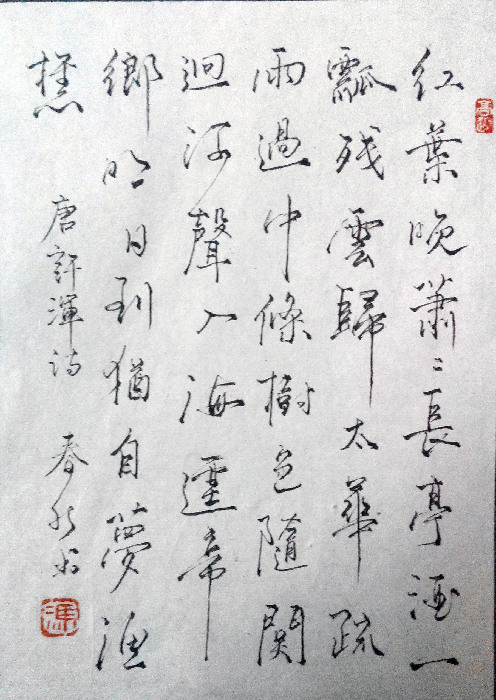 红葉晚蕭々長亭酒一
瓢残雲歸太華疏
雨過中條樹色隨関
迥河聲入海遥帝
鄉明日到猶自夢渔
樵
唐許渾诗 春书